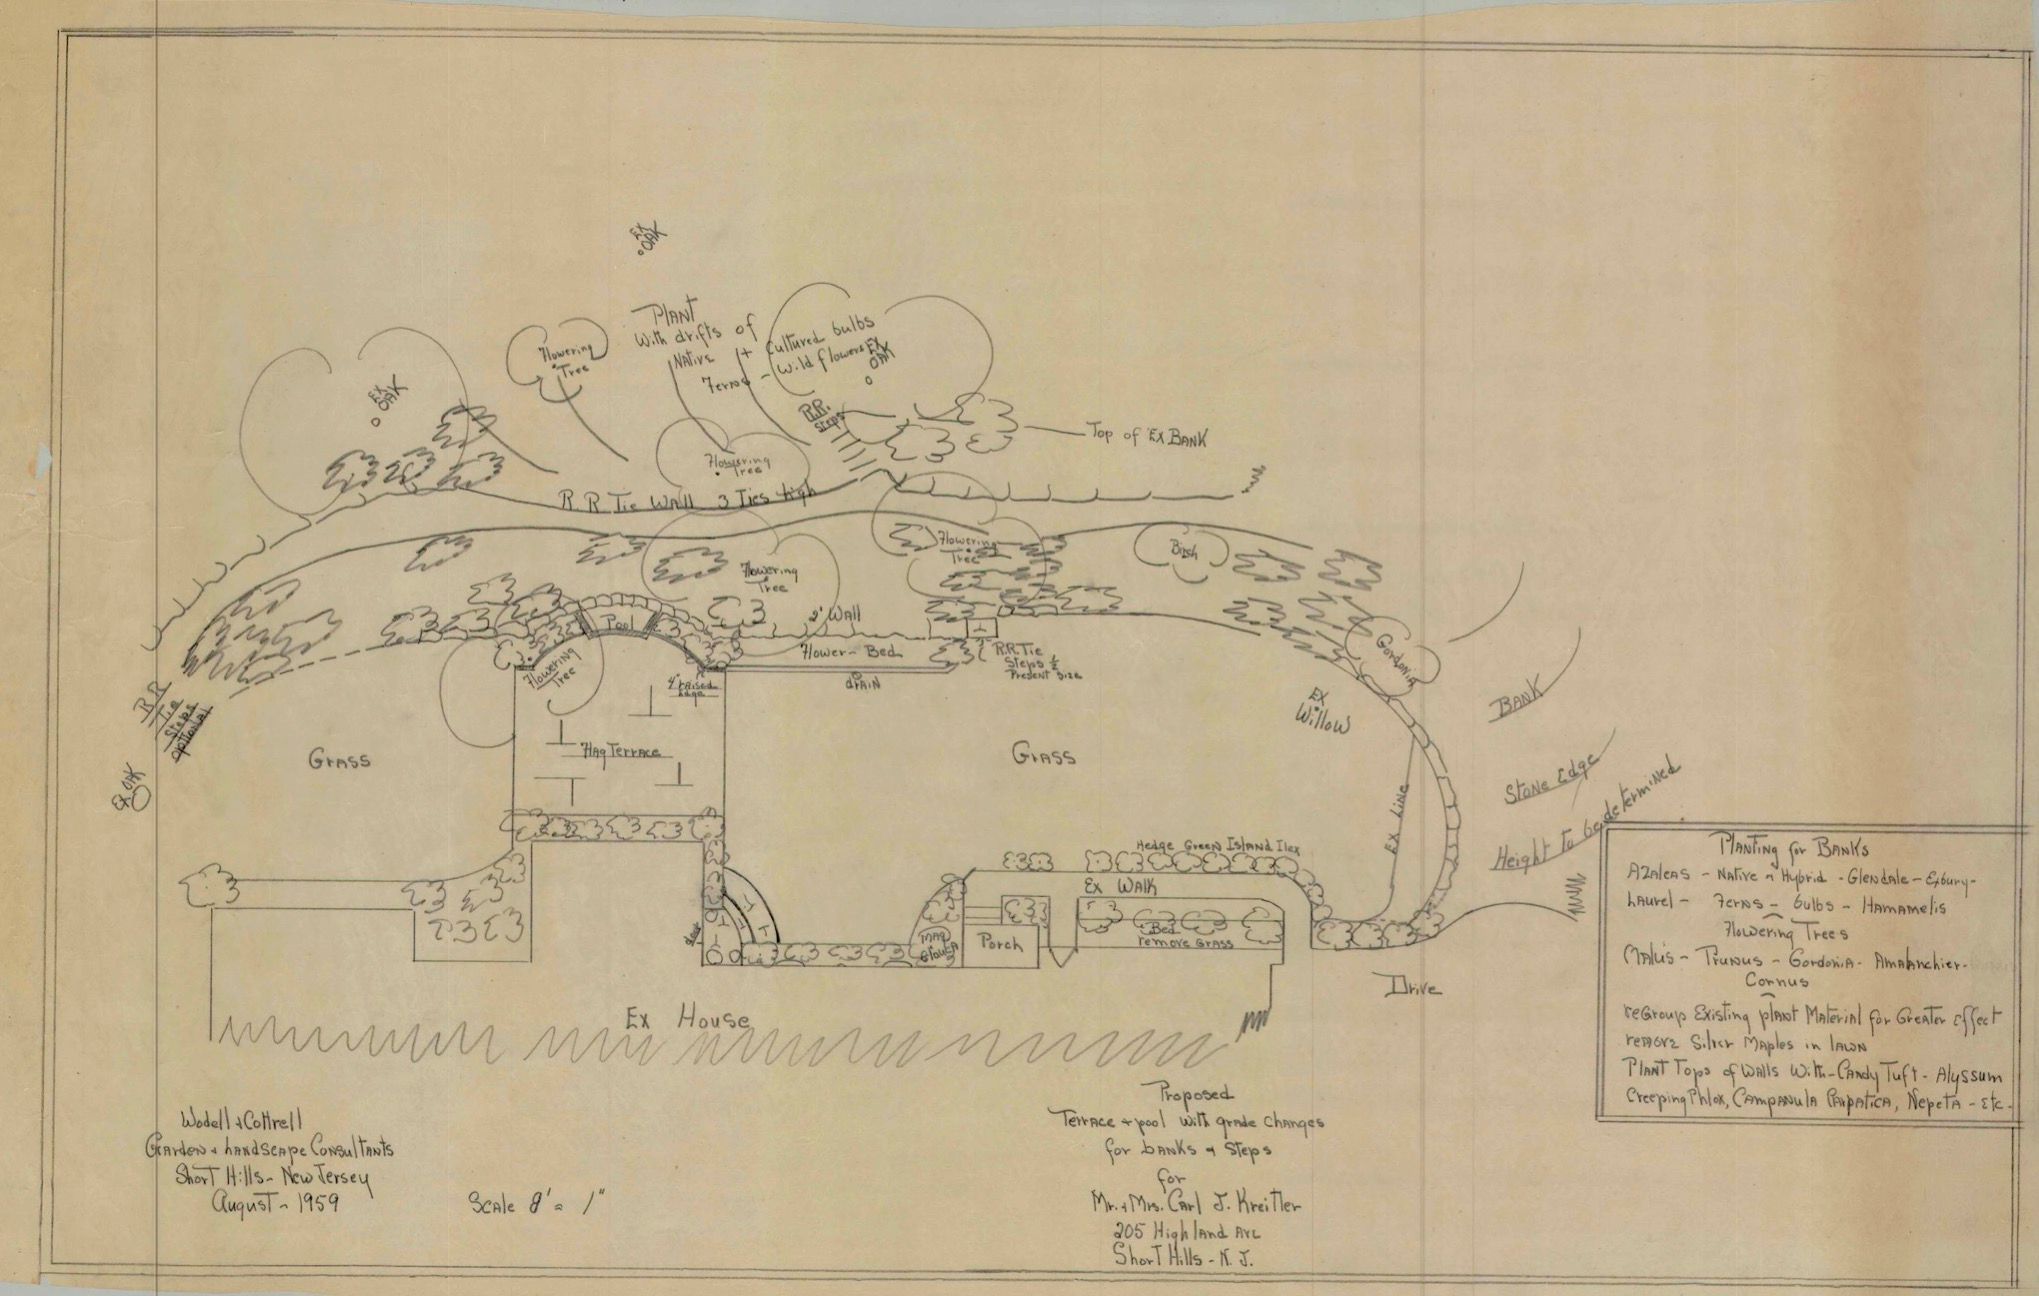 Ex
OAK
PLANT
With drifts of
NATIVE + Cultured bulbs
Ferns - Wild flowers
Flowering
Tree
Ex
OAK
Ex
OAK
R.R.
Steps
Top of Ex BANK
Flowering
Tree
R R Tie Wall 3 Ties high
Flowering
Tree
Birch
Flowering
Tree
2' Wall
Pool
Flower-Bed
R.R. Tie
Steps ½
Present Size
Gordonia
Flowering
Tree
4" raised
Edge
drain
R.R.
Tie
Steps
optional
Ex
Willow
BANK
Grass
Flag Terrace
Grass
Ex OAK
Stone Edge
Height to be determined
Ex Line
Hedge Green Island Ilex
Ex Walk
Bed
remove Grass
Mag
Glauca
Porch
Drive
Ex House
Planting for Banks
Azaleas - Native & Hybrid - Glendale - Exbury -
Laurel - Ferns - bulbs - Hamamelis
Flowering Trees
Malus - Prunus - Gordonia - Amalanchier -
Cornus
reGroup Existing plant Material for Greater Effect
remove Silver Maples in lawn
Plant Tops of Walls With - Candy Tuft - Alyssum
Creeping Phlox, Campanula Carpatica, Nepeta - Etc -
Wodell & Cottrell
Garden & Landscape Consultants
Short Hills - New Jersey
August - 1959
Scale 8' = 1"
Proposed
Terrace + pool with grade changes
for banks & Steps
for
Mr. & Mrs. Carl J. Kreitler
205 Highland Ave
Short Hills - N. J.